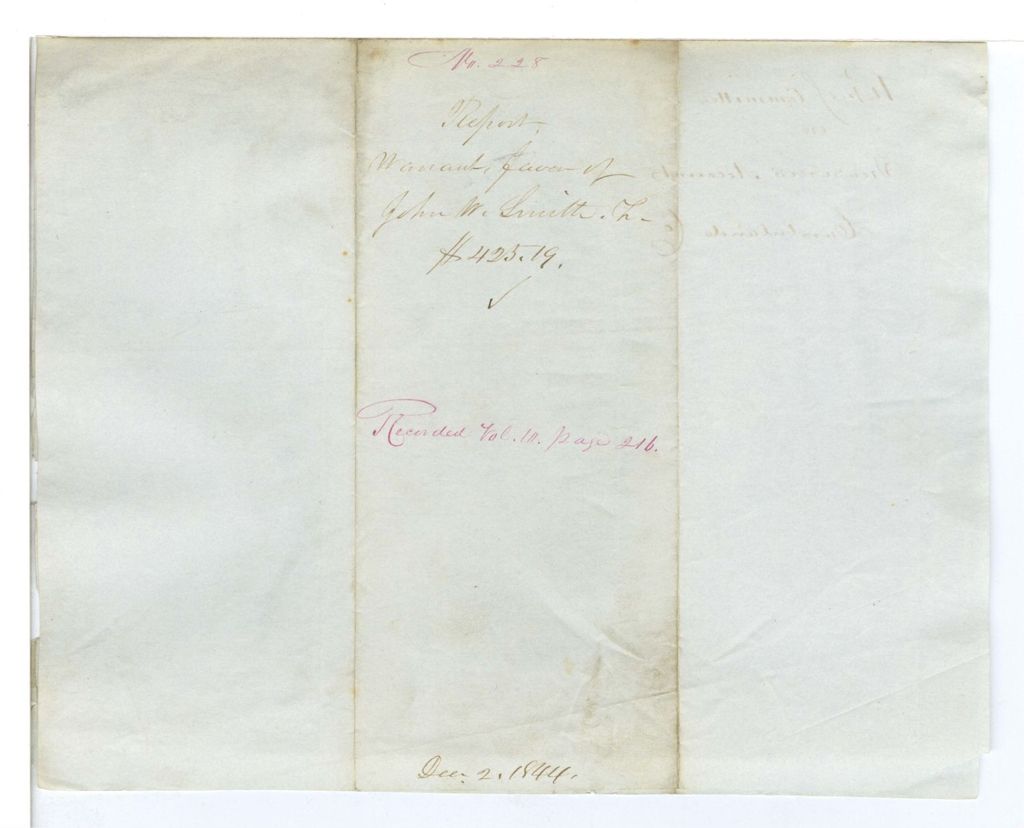 No. 228
Report,
Warrant, favor of
John W. Smith. Tr.
$425.19.
✓
Recorded Vol. 10. page 216.
Dec. 2. 1844.